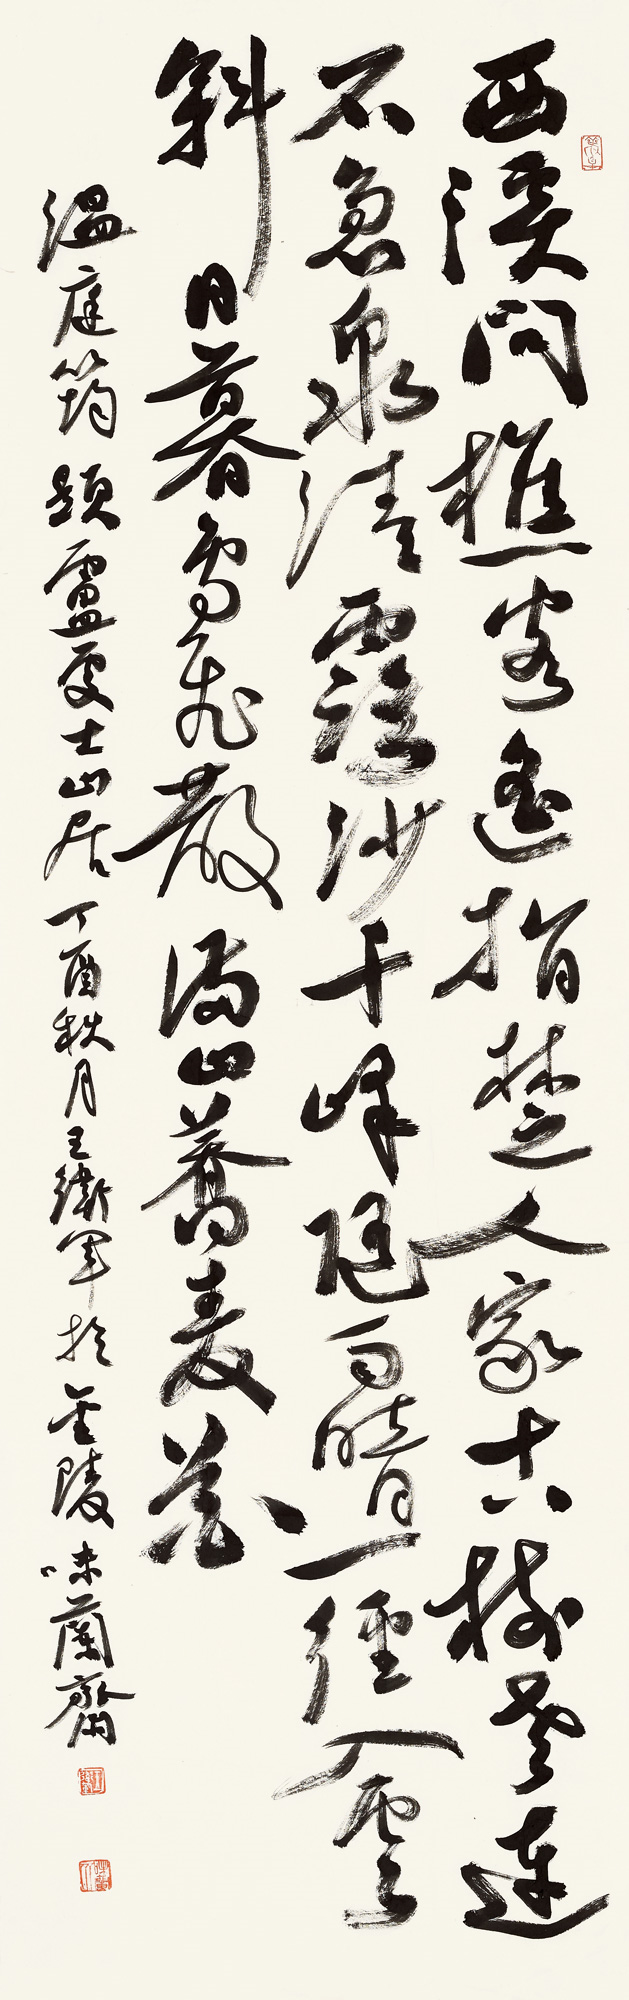 西溪問樵客遙指楚人家古樹老連
石急泉清露沙千峰隨雨暗一徑入雲
斜日暮鳥飛散滿山蕎麥花
溫庭筠題盧處士山居丁酉秋月王衛軍於金陵味蘭齋